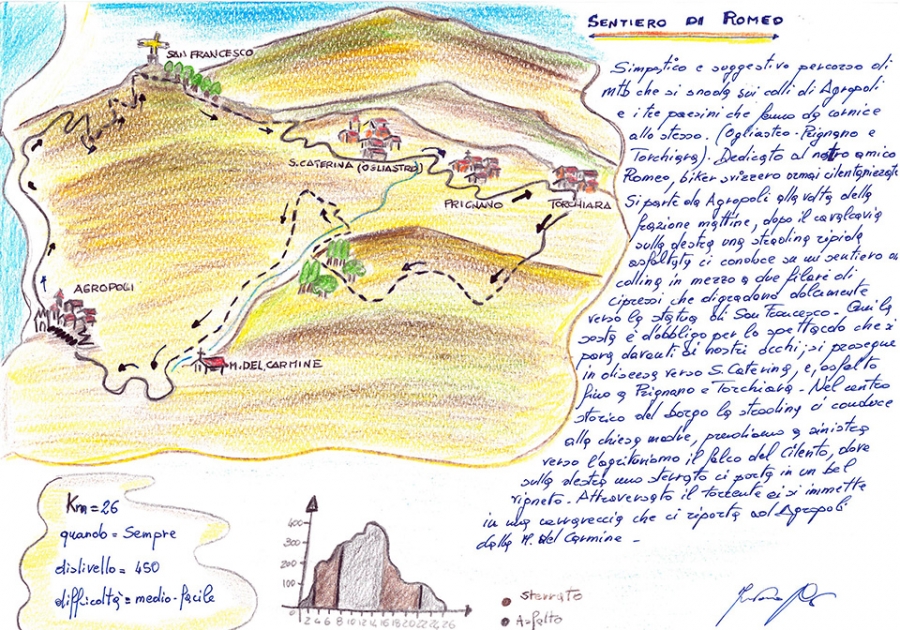 SENTIERO DI ROMEO
Simpatico e suggestivo percorso di
mtb che si snoda sui colli di Agropoli
e i tre paesini che fanno da cornice
allo stesso. (Ogliastro - Prignano e
Torchiara). Dedicato al nostro amico
Romeo, biker svizzero ormai cilentanizzato
Si parte da Agropoli alla volta della
frazione mattine, dopo il cavalcavia
sulla destra una stradina ripida
asfaltata ci conduce su un sentiero
collina in mezzo a due filari di
cipressi che digradano dolcemente
verso la statua di San Francesco - Qui la
sosta è d'obbligo per lo spettacolo che si
para davanti ai nostri occhi; si prosegue
in discesa verso S. Caterina, e, asfalto
fino a Prignano e Torchiara - Nel centro
storico del borgo la stradina ci conduce
alla chiesa madre, prendiamo a sinistra
verso l'agriturismo il falco del Cilento, dove
sulla destra uno sterrato ci porta in un bel
vigneto. Attraversato il torrente ci si immette
in una carrareccia che ci riporta ad Agropoli
dalla M. del Carmine -
SAN FRANCESCO
S. CATERINA (OGLIASTRO)
PRIGNANO
TORCHIARA
AGROPOLI
M. DEL CARMINE
Km = 26
quando = Sempre
dislivello = 450
difficoltà = medio-facile
400
300
200
100
2 4 6 8 10 12 14 16 18 20 22 24 26
Sterrato
Asfalto